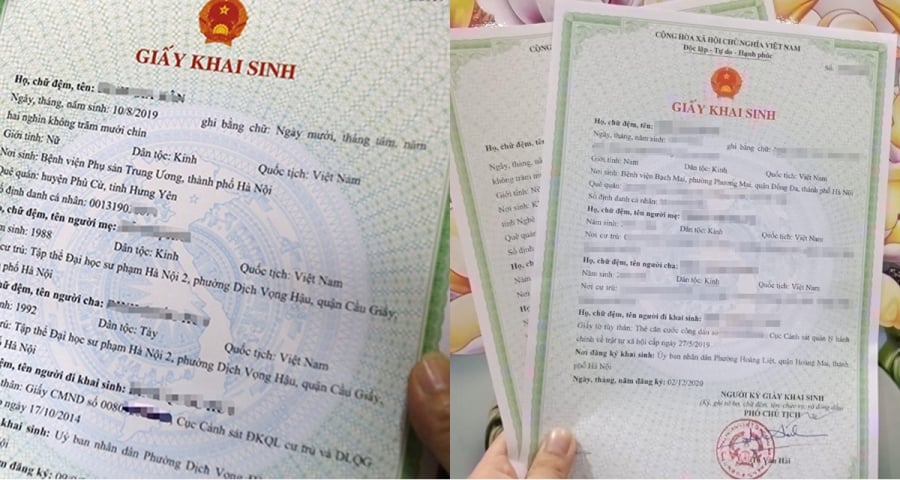 GIẤY KHAI SINH
Họ, chữ đệm, tên:
Ngày, tháng, năm sinh: 10/8/2019 ghi bằng chữ: Ngày mười, tháng tám, năm
hai nghìn không trăm mười chín
Giới tính: Nữ Dân tộc: Kinh Quốc tịch: Việt Nam
Nơi sinh: Bệnh viện Phụ sản Trung Ương, thành phố Hà Nội
Quê quán: huyện Phù Cừ, tỉnh Hưng Yên
định danh cá nhân: 0013190
chữ đệm, tên người mẹ:
sinh: 1988 Dân tộc: Kinh Quốc tịch: Việt Nam
cư trú: Tập thể Đại học sư phạm Hà Nội 2, phường Dịch Vọng Hậu, quận Cầu Giấy,
phố Hà Nội
chữ đệm, tên người cha:
1992 Dân tộc: Tày Quốc tịch: Việt Nam
trú: Tập thể Đại học sư phạm Hà Nội 2, phường Dịch Vọng Hậu, quận Cầu Giấy,
Hà Nội
đệm, tên người đi khai sinh:
thân: Giấy CMND số 0080 Cục Cảnh sát ĐKQL cư trú và DLQG
ngày 17/10/2014
khai sinh: Uỷ ban nhân dân Phường Dịch Vọng
đăng ký:
CỘNG HÒA XÃ HỘI CHỦ NGHĨA VIỆT NAM
Độc lập - Tự do - Hạnh phúc
Số:
GIẤY KHAI SINH
Họ, chữ đệm, tên:
Ngày, tháng, năm sinh: ghi bằng chữ:
Giới tính: Nam Dân tộc: Kinh Quốc tịch: Việt Nam
Nơi sinh: Bệnh viện Bạch Mai, phường Phương Mai, quận Đống Đa, thành phố Hà Nội
Quê quán:
Số định danh cá nhân:
Họ, chữ đệm, tên người mẹ:
Năm sinh: Dân tộc: Kinh Quốc tịch: Việt Nam
Nơi cư trú:
Họ, chữ đệm, tên người cha:
Năm sinh: Dân tộc: Kinh Quốc tịch: Việt Nam
Nơi cư trú:
Họ, chữ đệm, tên người đi khai sinh:
Giấy tờ tùy thân: Thẻ căn cước công dân số Cục Cảnh sát quản lý hành
chính về trật tự xã hội cấp ngày 27/5/2019
Nơi đăng ký khai sinh: Ủy ban nhân dân Phường Hoàng Liệt, quận Hoàng Mai, thành
phố Hà Nội
Ngày, tháng, năm đăng ký: 02/12/2020
NGƯỜI KÝ GIẤY KHAI SINH
(Ký, ghi rõ họ, chữ đệm, tên, chức vụ và đóng dấu)
PHÓ CHỦ TỊCH
CỘNG
Ngày, tháng
không trăm
Giới tính: N
Nơi sinh:
tỉnh Nghệ
Quê quán
Số định
Họ, ch
Năm
Nơi